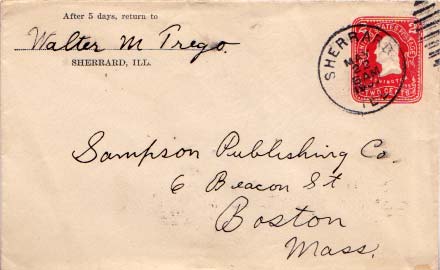 After 5 days, return to
Walter M Trego.
SHERRARD, ILL.
SHERRARD
ILL
TWO CENTS
Sampson Publishing Co
6 Beacon St
Boston
Mass.